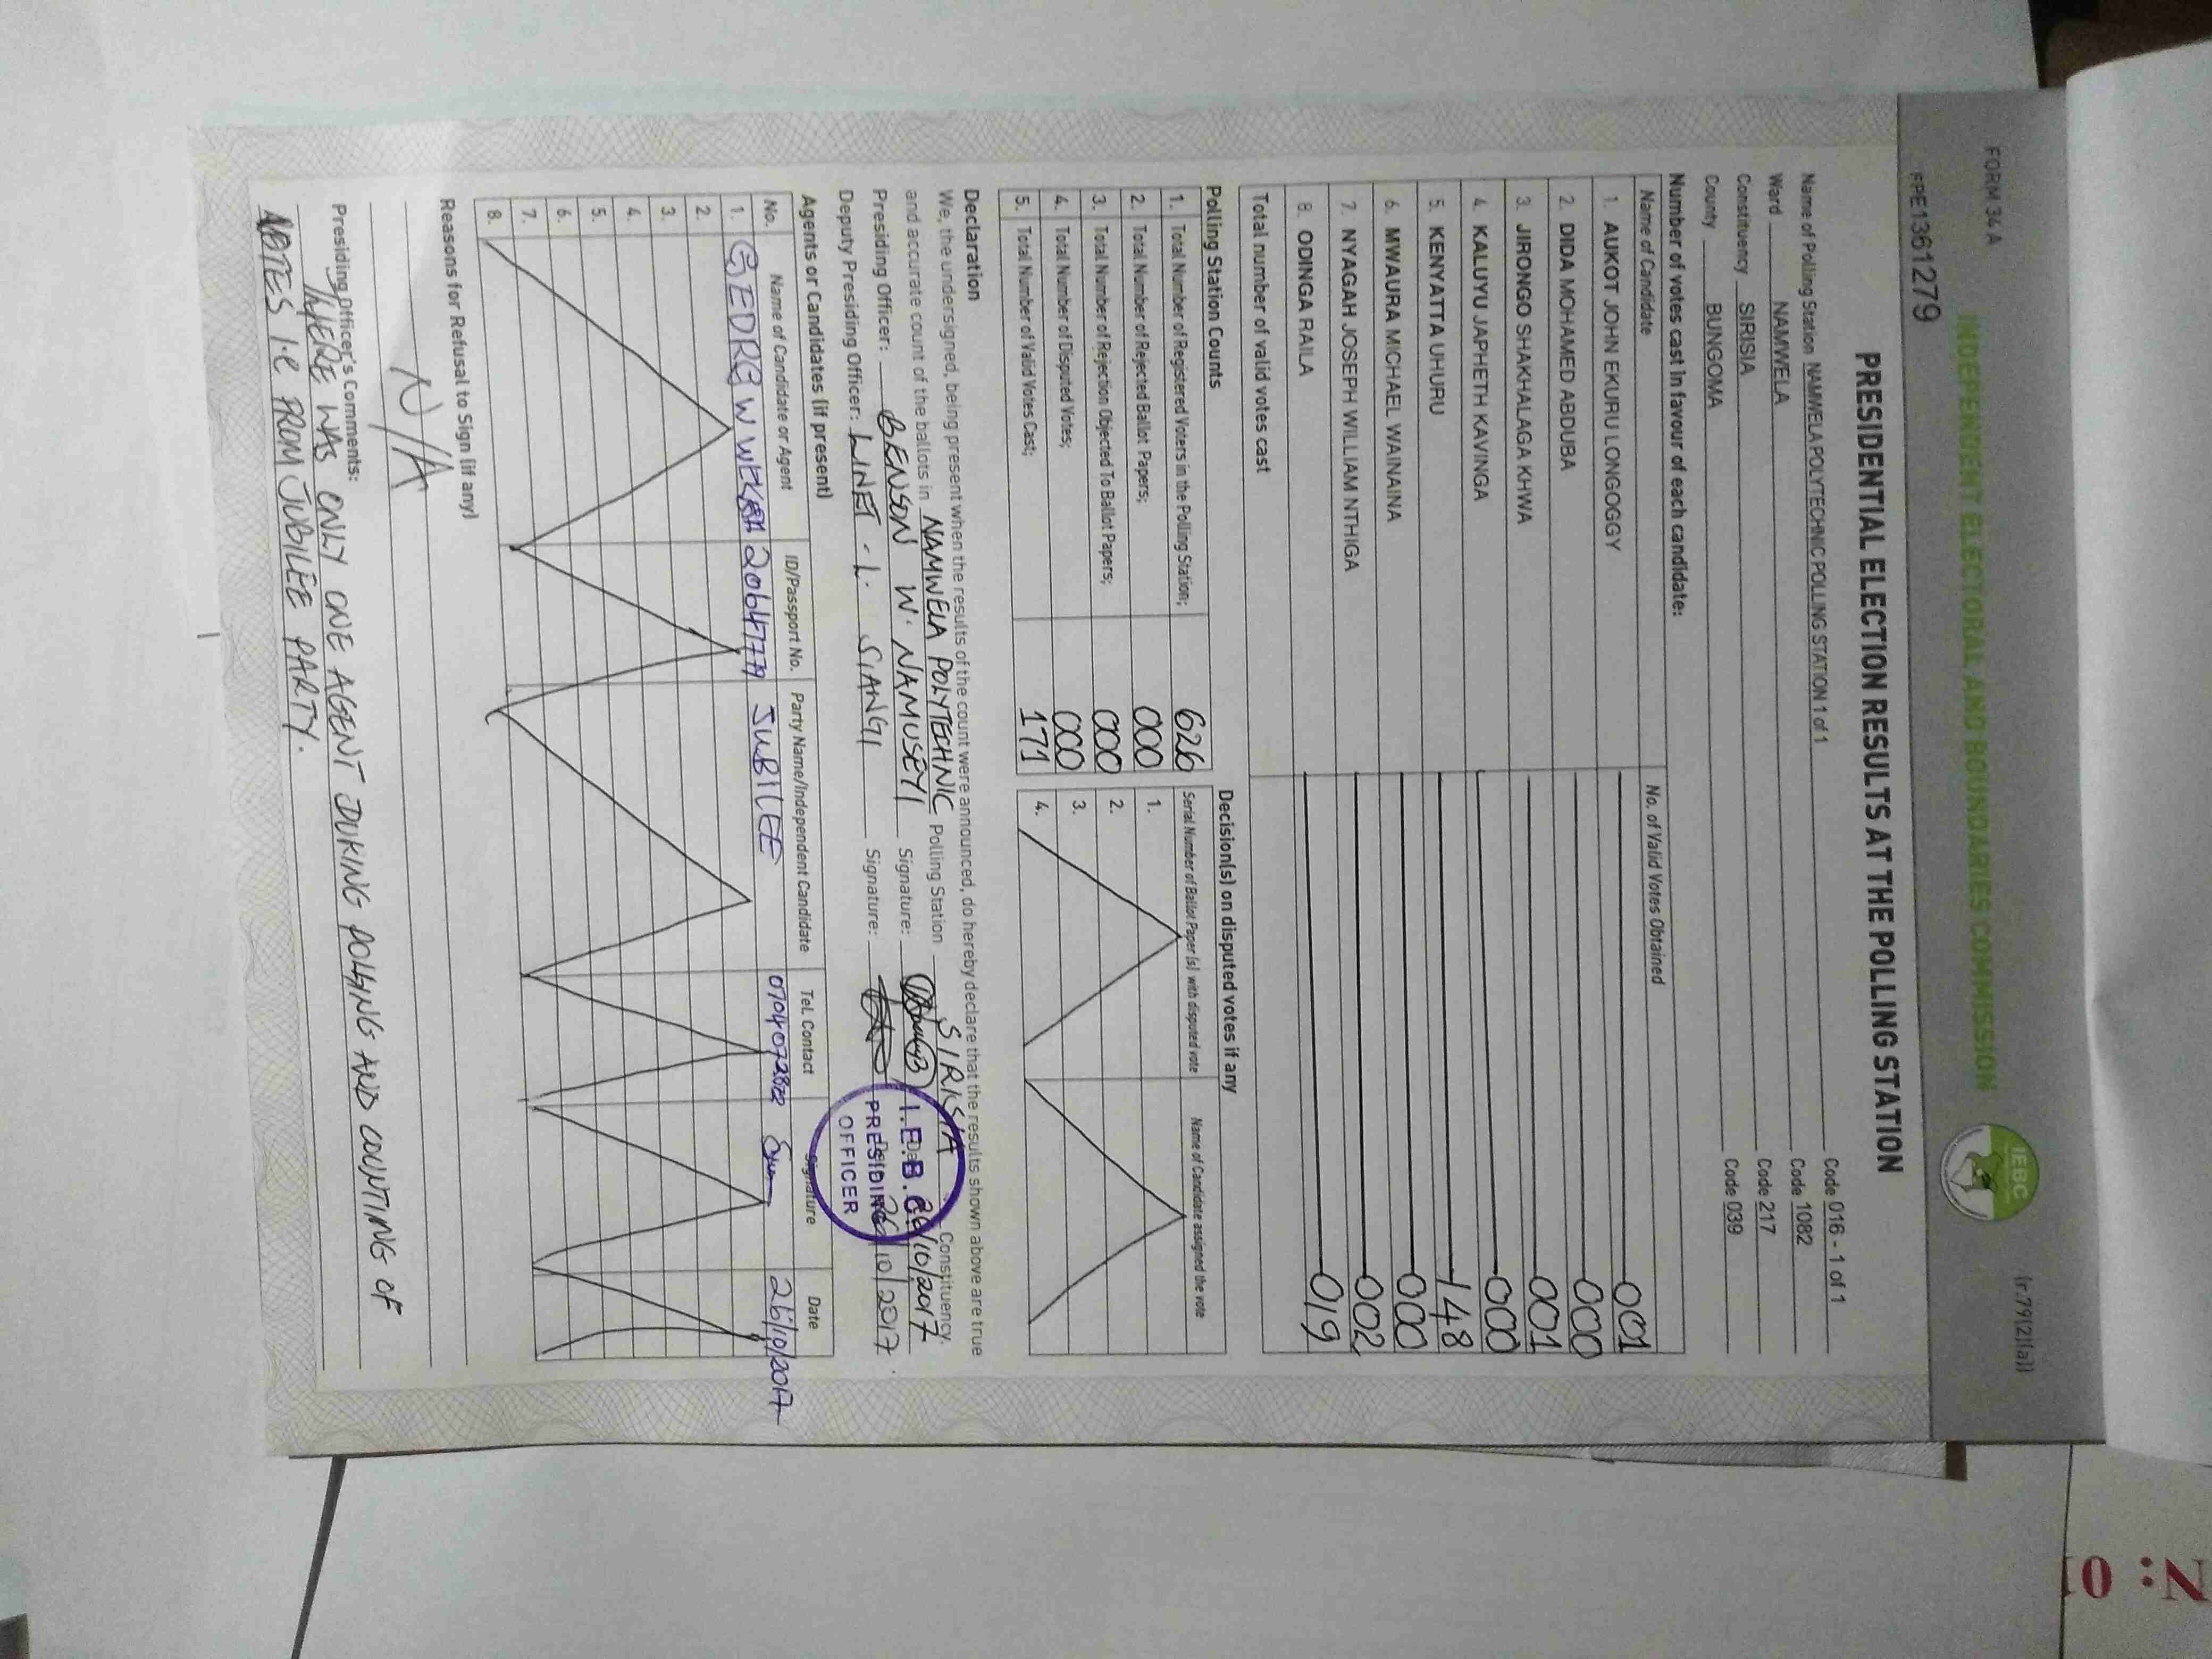 FORM 34 A
(r.79(2)(a))
INDEPENDENT ELECTORAL AND BOUNDARIES COMMISSION
IEBC
FPE1361279
PRESIDENTIAL ELECTION RESULTS AT THE POLLING STATION
Name of Polling Station NAMWELA POLYTECHNIC POLLING STATION 1 of 1 Code 016 - 1 of 1
Ward NAMWELA Code 1082
Constituency SIRISIA Code 217
County BUNGOMA Code 039
Number of votes cast in favour of each candidate:
Name of Candidate No. of Valid Votes Obtained
1. AUKOT JOHN EKURU LONGOGGY 001
2. DIDA MOHAMED ABDUBA 000
3. JIRONGO SHAKHALAGA KHWA 001
4. KALUYU JAPHETH KAVINGA 000
5. KENYATTA UHURU 148
6. MWAURA MICHAEL WAINAINA 000
7. NYAGAH JOSEPH WILLIAM NTHIGA 002
8. ODINGA RAILA 019
Total number of valid votes cast
Polling Station Counts
1. Total Number of Registered Voters in the Polling Station; 626
2. Total Number of Rejected Ballot Papers; 000
3. Total Number of Rejection Objected To Ballot Papers; 000
4. Total Number of Disputed Votes; 000
5. Total Number of Valid Votes Cast; 171
Decision(s) on disputed votes if any
Serial Number of Ballot Paper (s) with disputed vote Name of Candidate assigned the vote
1.
2.
3.
4.
Declaration
We, the undersigned, being present when the results of the count were announced, do hereby declare that the results shown above are true
and accurate count of the ballots in NAMWELA POLYTECHNIC Polling Station SIRISIA Constituency.
Presiding Officer: BENSON W. NAMUSEYI Signature: 26/10/2017
Deputy Presiding Officer: LINET - L. SIANGI Signature: 26/10/2017.
I.E.B.C.
PRESIDING
OFFICER
Agents or Candidates (if present)
No. Name of Candidate or Agent ID/Passport No. Party Name/Independent Candidate Tel. Contact Signature Date
1. W JUBILEE 26/10/2017
2.
3.
4.
5.
6.
7.
8.
Reasons for Refusal to Sign (if any)
N/A
Presiding Officer's Comments:
THERE WAS ONLY ONE AGENT DURING POLLING AND COUNTING OF
VOTES i.e FROM JUBILEE PARTY.